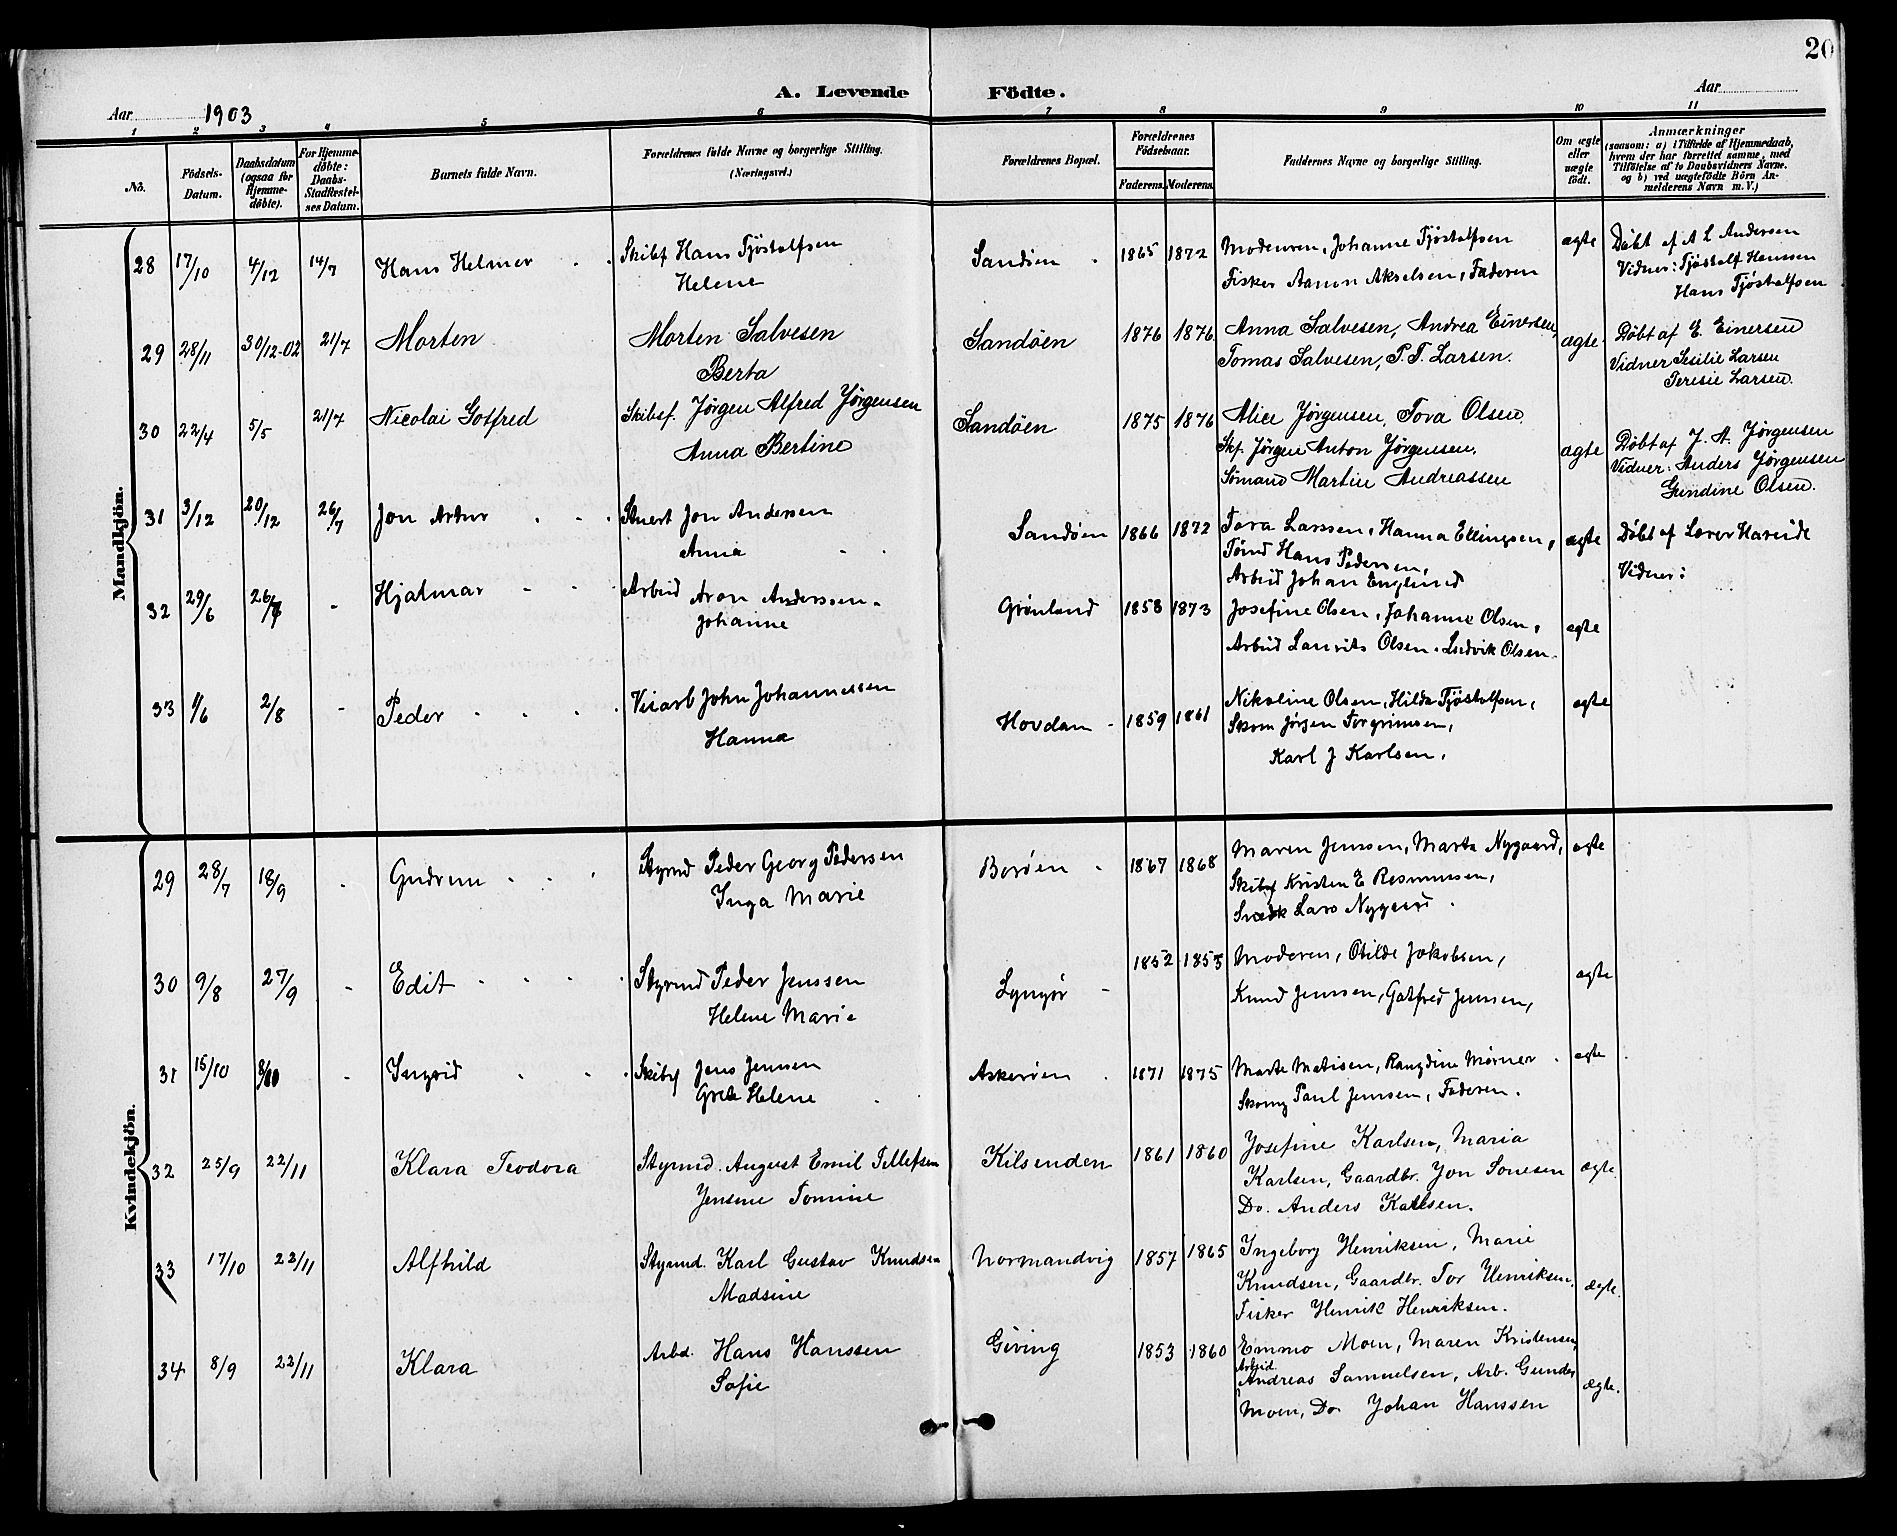 20
A. Levende Födte.
Aar 1903
Aar
1 2 3 4 5 6 7 8 9 10 11
No. Födsels-Datum. Daabsdatum (ogsaa for Hjemme-döbte). For Hjemme-döbte: Daabs-Stadfæstel-ses Datum. Barnets fulde Navn. Forældrenes fulde Navne og borgerlige Stilling. (Næringsvei.) Forældrenes Bopæl. Forældrenes Födselsaar. Faderens. Moderens. Faddernes Navne og borgerlige Stilling. Om ægte eller uægte födt. Anmærkninger (saasom: a) i Tilfælde af Hjemmedaab, hvem der har forrettet samme, med Tilföielse af to Daabsvidners Navne. og b) ved uægtefödte Börn An-melderens Navn m. V.)
Mandkjön.
28 17/10 4/12 14/7 Hans Helmer Skibsf Hans Tjöstolfsen Sandöen 1865 1872 Moderen, Johanne Tjöstolfsen ægte Döbt af A L Andersen
Helene Fisker Aanon Akselsen, Faderen Vidner: Tjöstolf Hanssen
Hans Tjöstolfsen
29 28/11 30/12-02 21/7 Morten Morten Salvesen Sandöen 1876 1876 Anna Salvesen, Andrea Einersen, ægte Döbt af E. Einersen
Berta Tomas Salvesen, P. T. Larsen. Vidner Sesilie Larsen
Teresie Larsen.
30 22/4 5/5 21/7 Nicolai Gotfred Skibsf. Jörgen Alfred Jörgensen Sandöen 1875 1876 Alice Jörgensen, Tora Olsen. ægte Döbt af J. A. Jörgensen
Anna Bertine Skf. Jörgen Anton Jörgensen. Vidner: Anders Jörgensen
Sömand Martin Andreassen Gundine Olsen.
31 3/12 20/12 26/7 Jon Artur Stuert Jon Andersen Sandöen 1866 1872 Tora Larssen, Hanna Ellingsen, ægte Döbt af Lærer Hareide
Anna Tömd Hans Pedersen, Vidner:
Arbeid Johan Englund
32 29/6 26/7 - Hjalmar Arbeid Aron Anderssen Grönland 1858 1873 Josefine Olsen, Johanne Olsen, ægte
Johanne Arbeid Laurits Olsen. Ludvik Olsen.
33 1/6 2/8 - Peder Veiarb John Johannessen Hovdan 1859 1861 Nikoline Olsen, Hilda Tjöstolfsen, ægte
Hanna Skom Jörgen Torgrimsen,
Karl J Karlsen,
Kvindekjön.
29 28/7 18/9 - Gudrun Styrmd Peder Georg Pedersen Boröen 1867 1868 Maren Jenssen, Marta Nygaard, ægte
Inga Marie Skibsf Kristen E Rasmussen,
Snedk Lars Nygaard
30 9/8 27/9 - Edit Styrmd Peder Jenssen Lyngör 1852 1853 Moderen, Otilde Jakobsen, ægte
Helene Marie Knud Jenssen, Gotfred Jenssen,
31 15/10 8/10 - Ingrid Skibsf Jens Jenssen Askeröen 1871 1875 Marte Matisen, Rangdine Mörner ægte
Grete Helene Skomg Paul Jenssen, Faderen.
32 25/9 22/11 Klara Teodora Styrmd. August Emil Tellefsen Kilsenden 1861 1860 Josefine Karlsen, Maria
Jensine Tomine Karlsen, Gaardbr. Jon Sonesen ægte.
Do. Anders Karlsen.
33 17/10 22/11 Alfhild Styrmd. Karl Gustav Knudsen Normandvig 1857 1865 Ingeborg Henriksen, Marie
Madsine Knudsen, Gaardbr. Tor Henriksen, ægte.
Fisker Henrik Henriksen.
34 8/9 22/11 Klara Arbd. Hans Hanssen Giving 1853 1860 Emma Moen, Maren Kristensen,
Sofie Arbeid. Andreas Samuelsen, Arb. Gunder ægte.
Moen, Do. Johan Hanssen